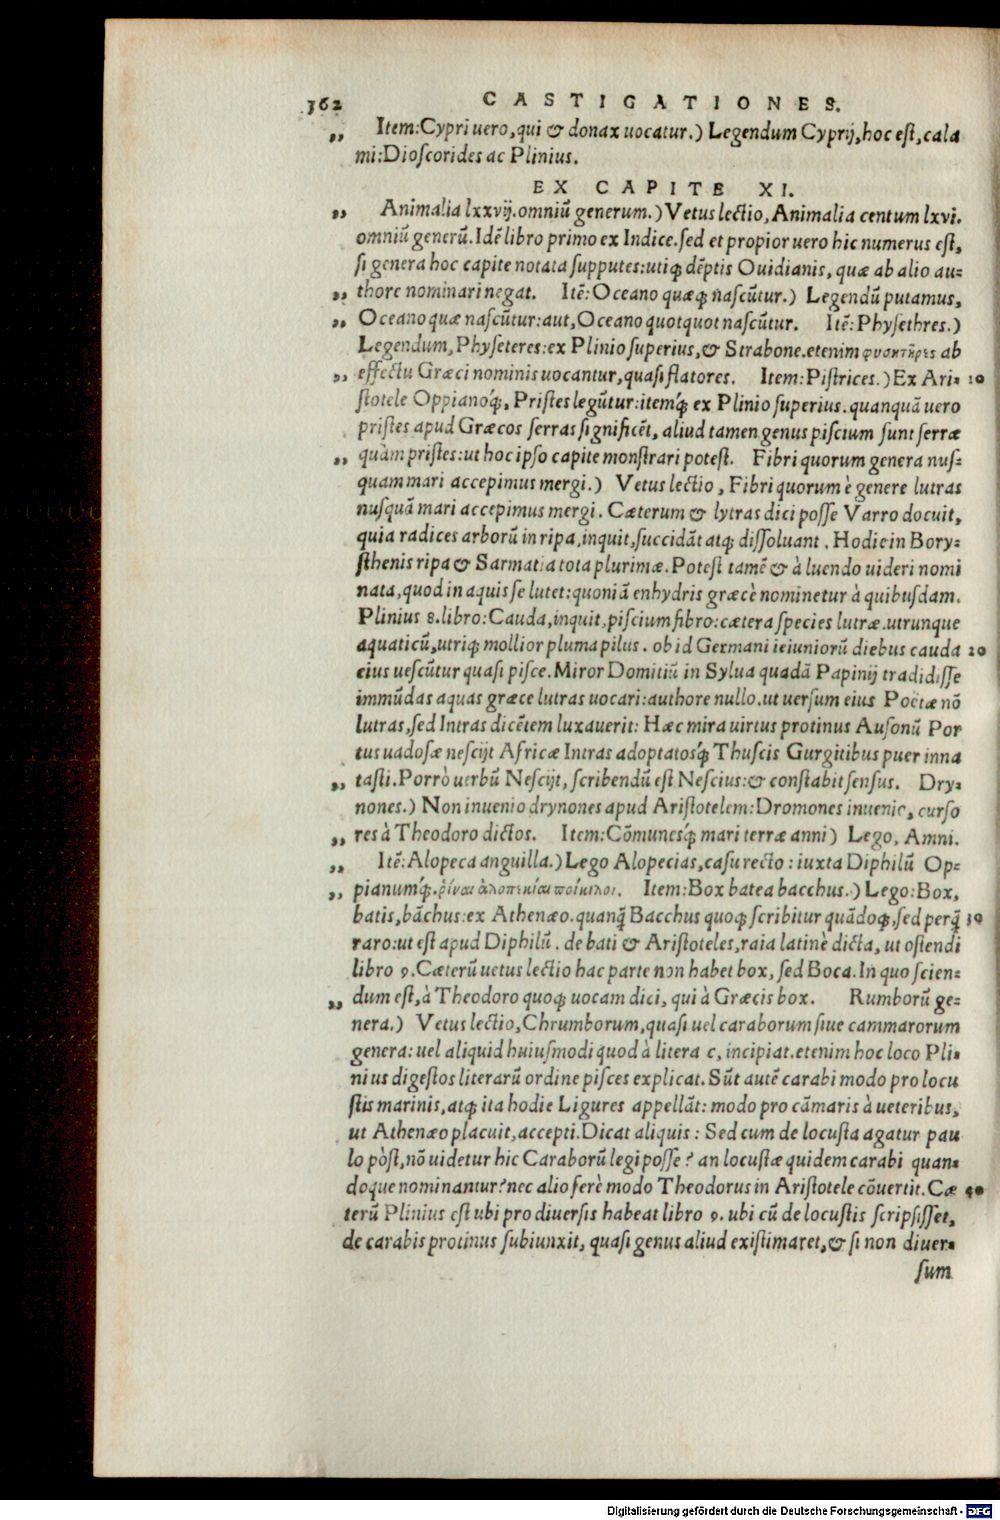 362 CASTIGATIONES.
„ Item: Cypri uero, qui & donax uocatur.) Legendum Cyprij, hoc est, cala
mi: Dioscorides ac Plinius.
EX CAPITE XI.
„ Animalia lxxvij. omniũ generum.) Vetus lectio, Animalia centum lxvi.
omniũ generũ. Idẽ libro primo ex Indice. sed et propior uero hic numerus est,
si genera hoc capite notata supputes: utiq; dẽptis Ouidianis, quæ ab alio au=
„ thore nominari negat. Itẽ: Oceano quæq; nascũtur.) Legendũ putamus,
„ Oceano quæ nascũtur: aut, Oceano quotquot nascũtur. Itẽ: Physethres.)
Legendum, Physeteres: ex Plinio superius, & Strabone. etenim φυσητῆρες ab
„ effectu Græci nominis uocantur, quasi flatores. Item: Pistrices.) Ex Ari= 10
stotele Oppianoq́;, Pristes legũtur: itemq́; ex Plinio superius. quanquã uero
pristes apud Græcos serras significẽt, aliud tamen genus piscium sunt serræ
„ quàm pristes: ut hoc ipso capite monstrari potest. Fibri quorum genera nus=
quam mari accepimus mergi.) Vetus lectio, Fibri quorum è genere lutras
nusquã mari accepimus mergi. Cæterum & lytras dici posse Varro docuit,
quia radices arborũ in ripa, inquit, succidãt atq; dissoluant. Hodie in Bory=
sthenis ripa & Sarmatia tota plurimæ. Potest tamẽ & à luendo uideri nomi
nata, quod in aquis se lutet: quoniã enhydris græcè nominetur à quibusdam.
Plinius 8. libro: Cauda, inquit, piscium fibro: cætera species lutræ. utrunque
aquaticũ, utriq; mollior pluma pilus. ob id Germani ieiuniorũ diebus cauda 20
eius uescũtur quasi pisce. Miror Domitiũ in Sylua quadã Papinij tradidisse
immũdas aquas græce lutras uocari: authore nullo. ut uersum eius Poetæ nõ
lutras, sed Intras dicẽtem luxauerit: Hæc mira uirtus protinus Ausonũ Por
tus uadosæ nescijt Africæ Intras adoptatosq́; Thuscis Gurgitibus puer inna
„ tasti. Porrò uerbũ Nescijt, scribendũ est Nescius: & constabit sensus. Dry=
nones.) Non inuenio drynones apud Aristotelem: Dromones inuenio, curso
„ res à Theodoro dictos. Item: Cõmunesq́; mari terræ anni) Lego, Amni.
„ Itẽ: Alopeca anguilla.) Lego Alopecias, casu recto: iuxta Diphilũ Op=
„ pianumq́;. ῥίναι ἀλωπεκίαι ποίκιλοι. Item: Box batea bacchus.) Lego: Box,
batis, bãchus: ex Athenæo. quanq̃ Bacchus quoq; scribitur quãdoq;, sed perq̃ 30
raro: ut est apud Diphilũ. de bati & Aristoteles, raia latinè dicta, ut ostendi
libro 9. Cæterũ uetus lectio hac parte non habet box, sed Boca. In quo scien=
„ dum est, à Theodoro quoq; uocam dici, qui à Græcis box. Rumborũ ge=
nera.) Vetus lectio, Chrumborum, quasi uel caraborum siue cammarorum
genera: uel aliquid huiusmodi quod à litera c, incipiat. etenim hoc loco Pli=
nius digestos literarũ ordine pisces explicat. Sũt autẽ carabi modo pro locu
stis marinis, atq; ita hodie Ligures appellãt: modo pro cãmaris à ueteribus,
ut Athenæo placuit, accepti. Dicat aliquis: Sed cum de locusta agatur pau
lo pòst, nõ uidetur hic Caraborũ legi posse? an locustæ quidem carabi quan=
doque nominantur? nec alio ferè modo Theodorus in Aristotele cõuertit. Cæ 40
terũ Plinius est ubi pro diuersis habeat libro 9. ubi cũ de locustis scripsisset,
de carabis protinus subiunxit, quasi genus aliud existimaret, & si non diuer=
sum
Digitalisierung gefördert durch die Deutsche Forschungsgemeinschaft - DFG